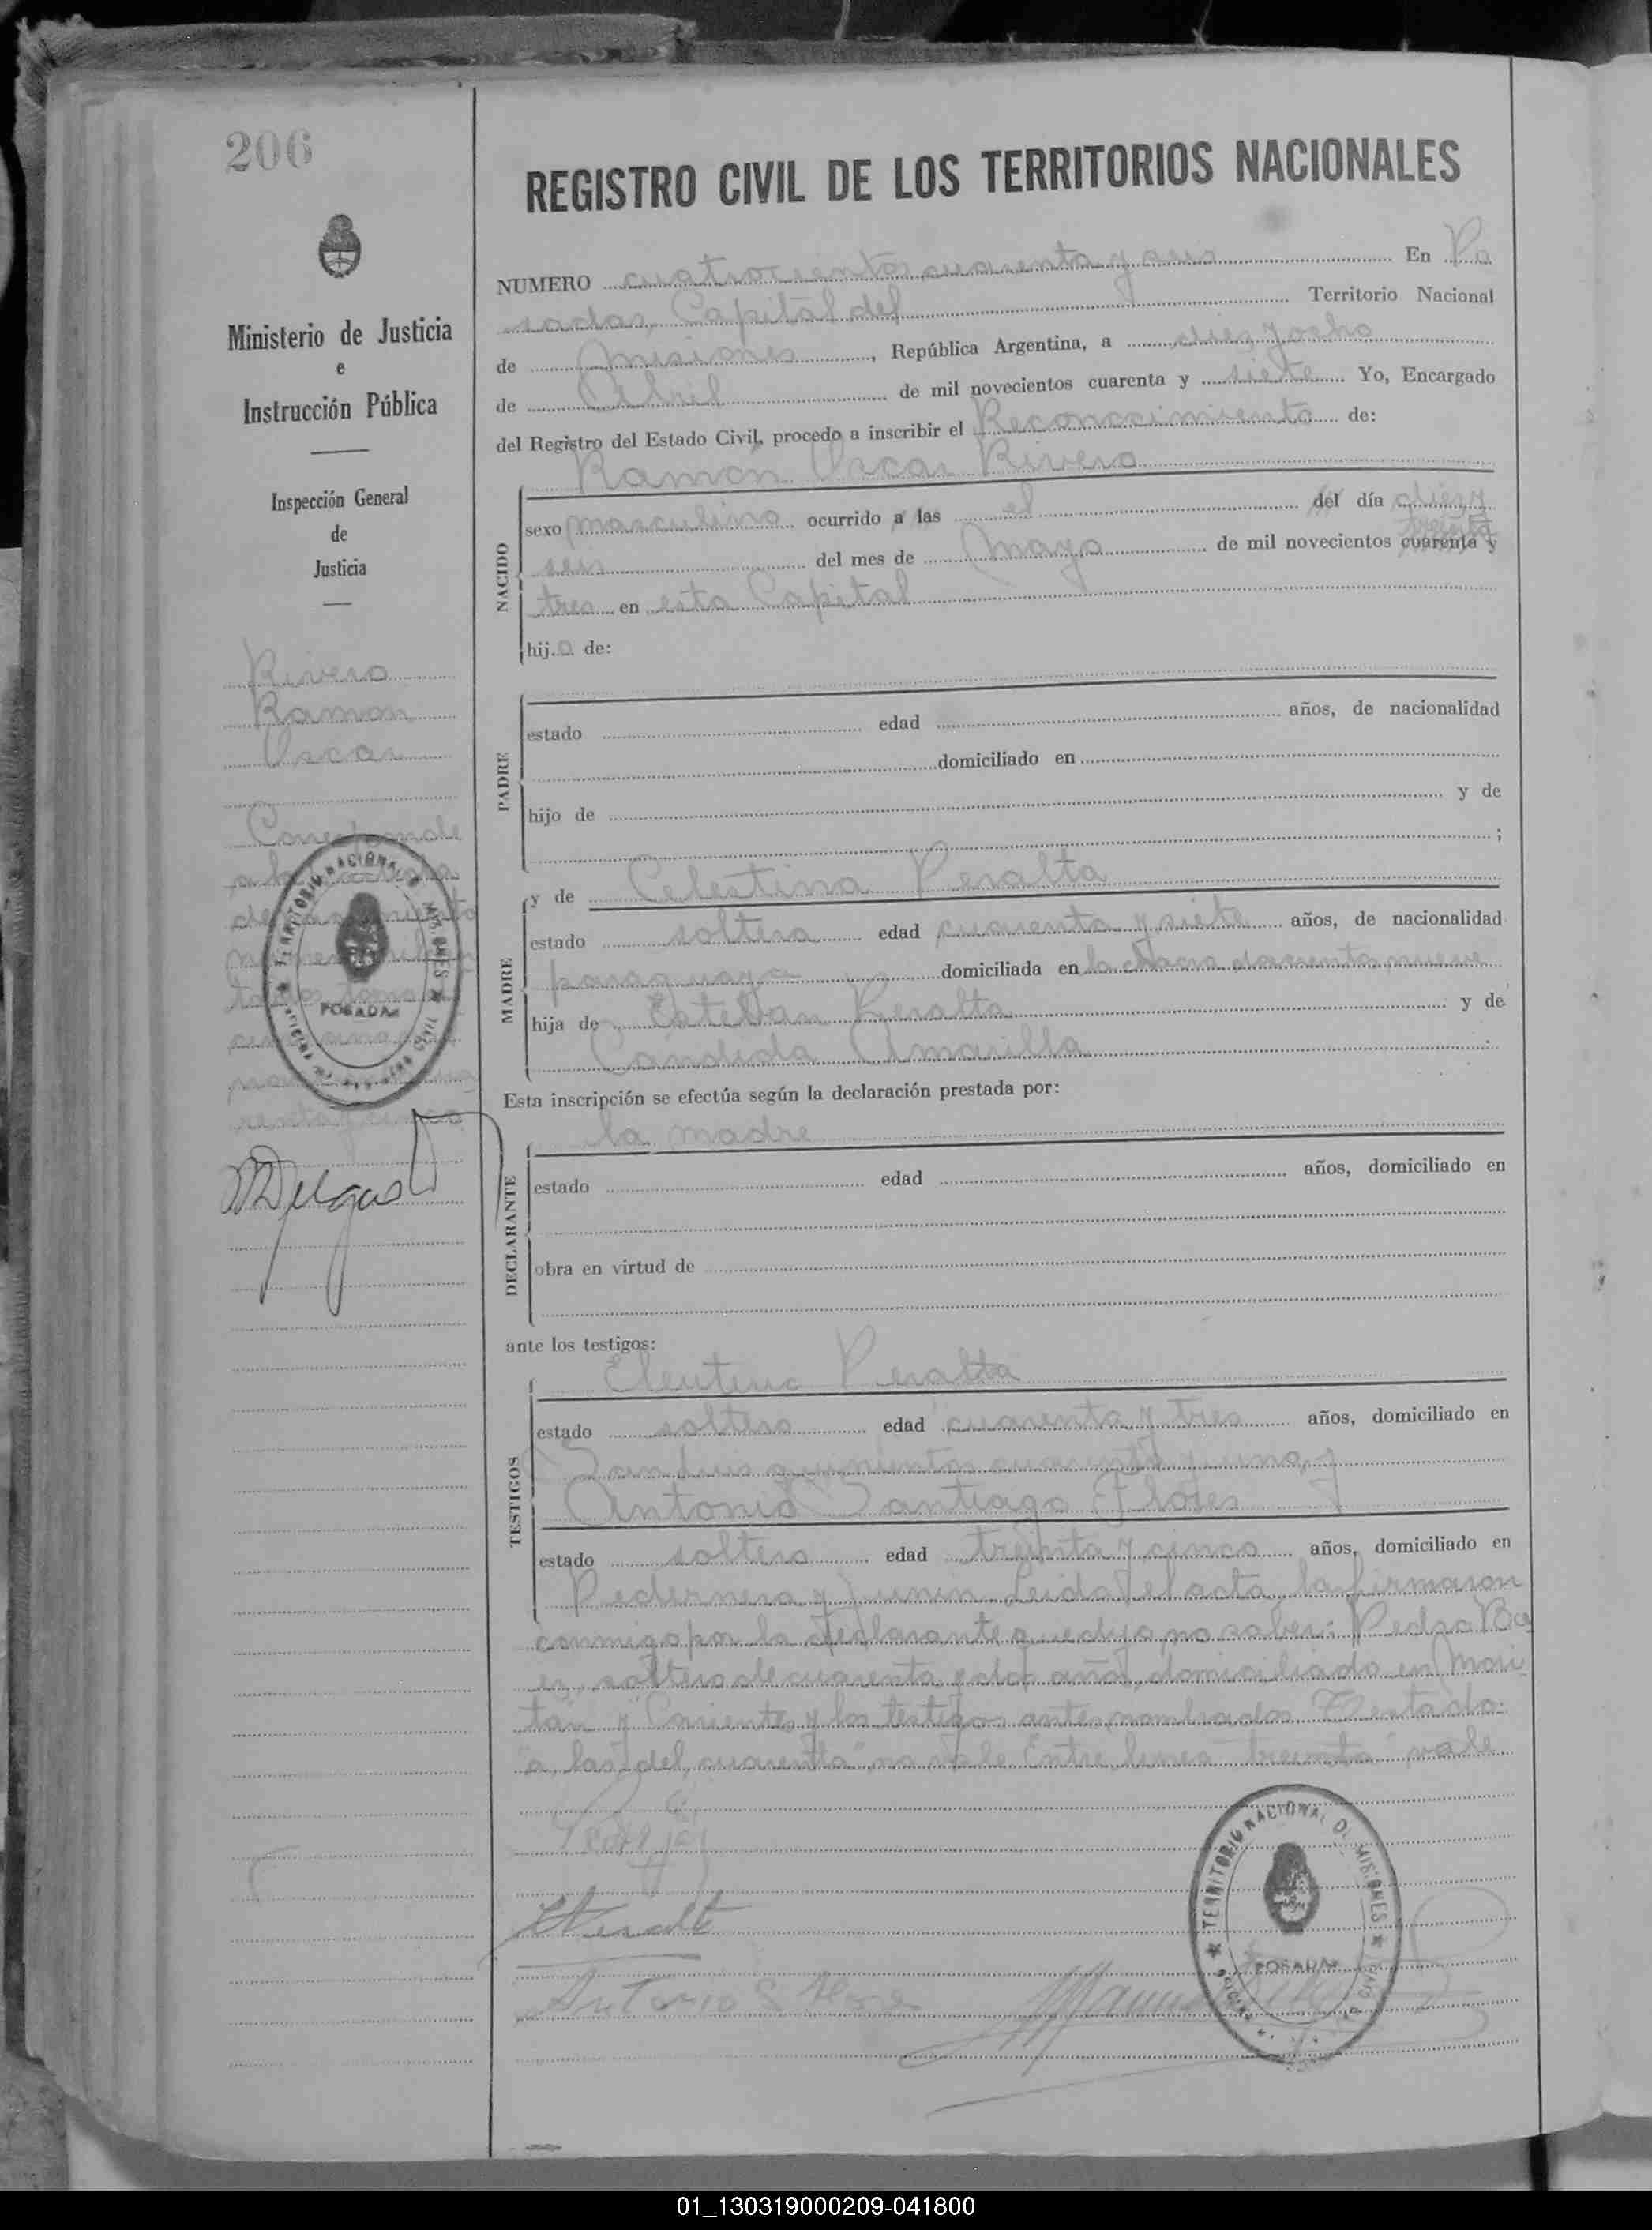 206
Ministerio de Justicia
e
Instrucción Pública
Inspección General
de
Justicia
Rivero
Ramon
Oscar
Corresponde
a la
de
POSADAS
REGISTRO CIVIL DE LOS TERRITORIOS NACIONALES
NUMERO cuatrocientos cuarenta y seis En Po
sadas, Capital del Territorio Nacional
de Misiones, República Argentina, a diez y ocho
de Abril de mil novecientos cuarenta y siete Yo, Encargado
del Registro del Estado Civil, procedo a inscribir el Reconocimiento de:
Ramon Oscar Rivero
NACIDO
sexo masculino ocurrido a las el del día diez y
treinta
seis del mes de Mayo de mil novecientos cuarenta y
tres en esta Capital
hijo de:
PADRE
estado edad años, de nacionalidad
domiciliado en
hijo de y de
;
MADRE
y de Celestina Peralta
estado soltera edad cuarenta y siete años, de nacionalidad
paraguaya domiciliada en la chacra doscientos nueve
hija de Esteban Peralta y de
Cándida Amarilla
Esta inscripción se efectúa según la declaración prestada por:
la madre
DECLARANTE
estado edad años, domiciliado en
obra en virtud de
ante los testigos:
TESTIGOS
Eleuterio Peralta
estado soltero edad cuarenta y tres años, domiciliado en
San Luis quinientos cuarenta y uno, y
Antonio Santiago Flores
estado soltero edad treinta y cinco años, domiciliado en
Pedernera y Junin. Leida el acta, la firmaron
conmigo por la declarante que dijo no saber: Pedro Ba
ez, soltero de cuarenta y dos años, domiciliado en Mai
tán y Corrientes y los testigos antes nombrados. Testado:
"a las" "del, cuarenta" no vale. Entre linea "treinta" vale.
TERRITORIO NACIONAL DE MISIONES
POSADAS
01_130319000209-041800